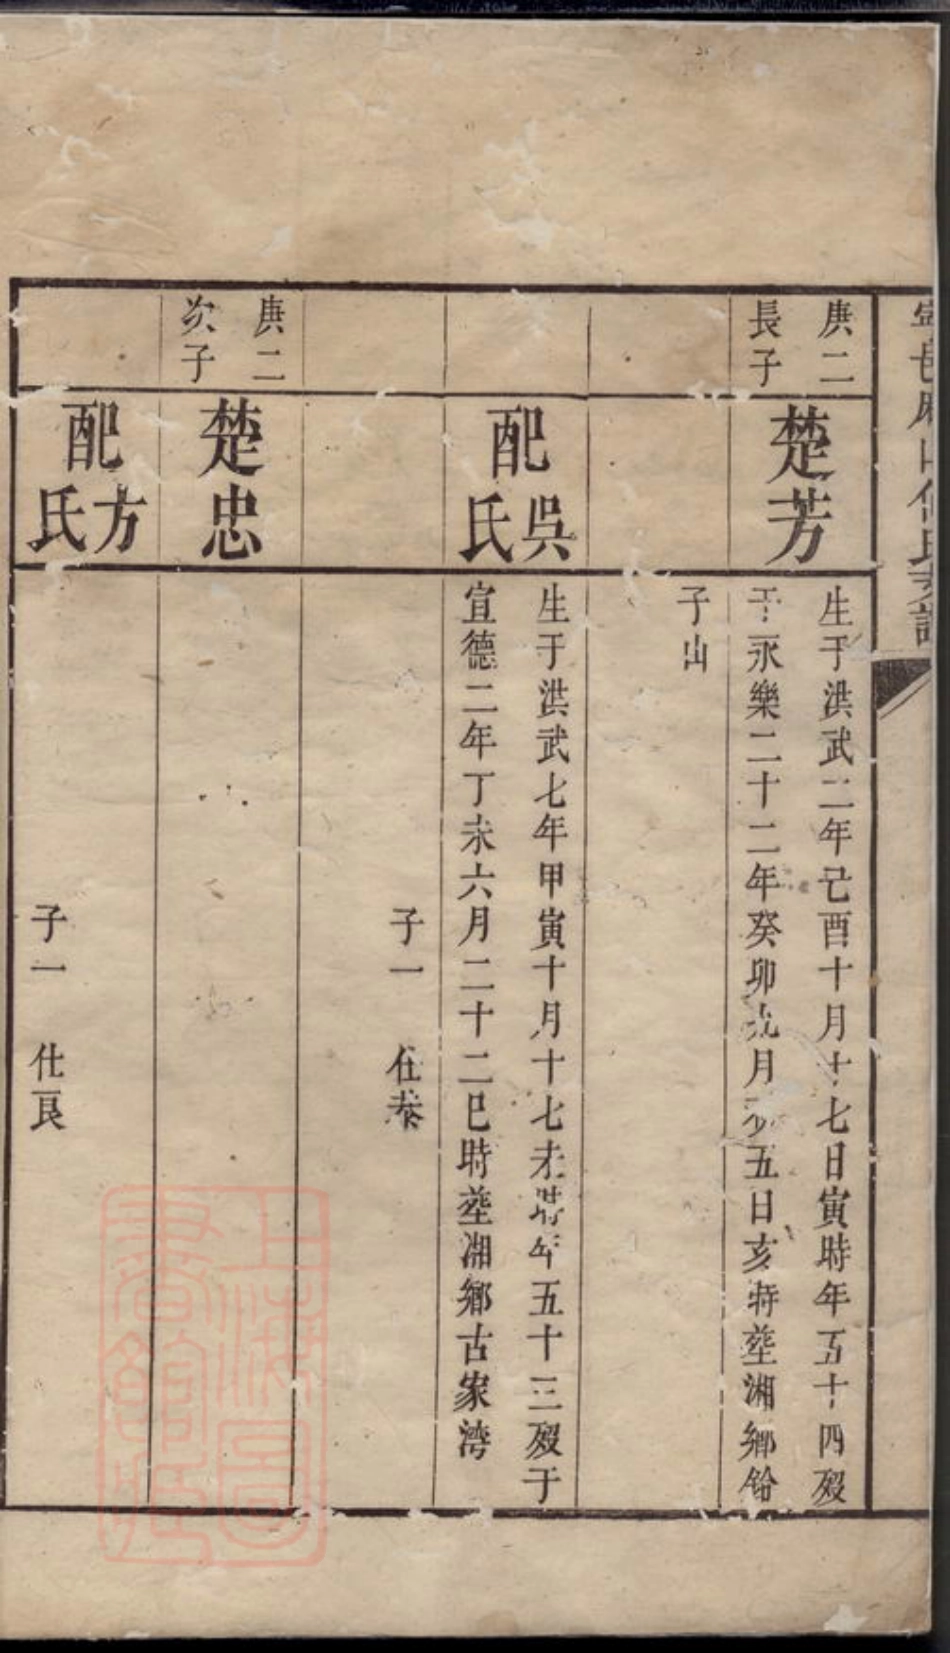 庚二
長子
楚芳
生于洪武二年己酉十月十七日寅時年五十四歿
于永樂二十二年癸卯九月初五日亥時塟湘鄉鉿
子山
配吳氏
生于洪武七年甲寅十月十七未時年五十三歿于
宣德二年丁未六月二十二巳時塟湘鄉古家湾
子一 仕泰
庚二
次子
楚忠
配方氏
子一 仕良
上海圖
書館藏